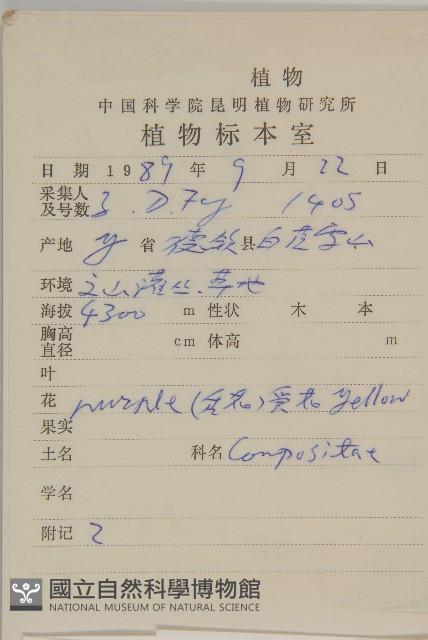 植物
中国科学院昆明植物研究所
植物标本室
日期 1989年9月22日
采集人及号数 1405
产地 y 省德钦县白茫雪山
环境 灌丛、草地
海拔 4300 m 性状 木 本
胸高直径 cm 体高 m
叶
花 purple (舌花) 黄花 yellow
果实
土名 科名 Compositae
学名
附记 2
國立自然科學博物館
NATIONAL MUSEUM OF NATURAL SCIENCE